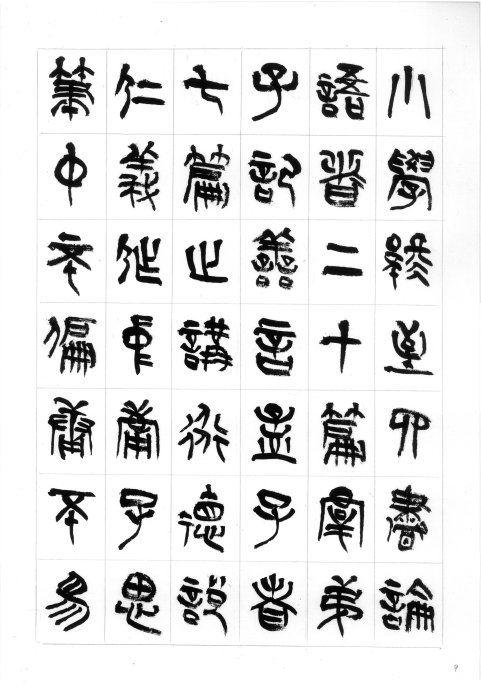 小學終至四書論
語者二十篇羣弟
子記善言孟子者
七篇止講道德說
仁義作中庸子思
筆中不偏庸不易
9